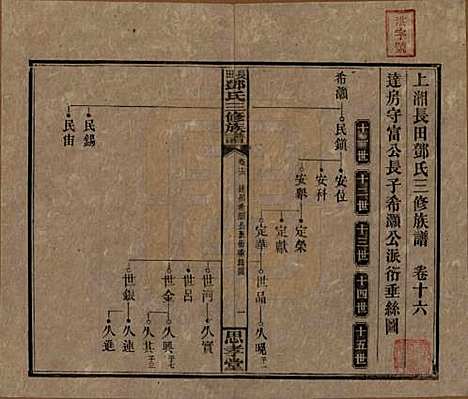 上湘長田鄧氏三修族譜 卷十六
達房守富公長子希灝公派衍垂絲圖
十一世 十二世 十三世 十四世 十五世
希灝
民鎮
安位
安科
安舉
定榮
定獻
定華
世品
久晛
長田鄧氏三修族譜
卷十六
一
思孝堂
民錫
民宙
世河
久實
世呂
世金
久興
久其
世銀
久連
久進